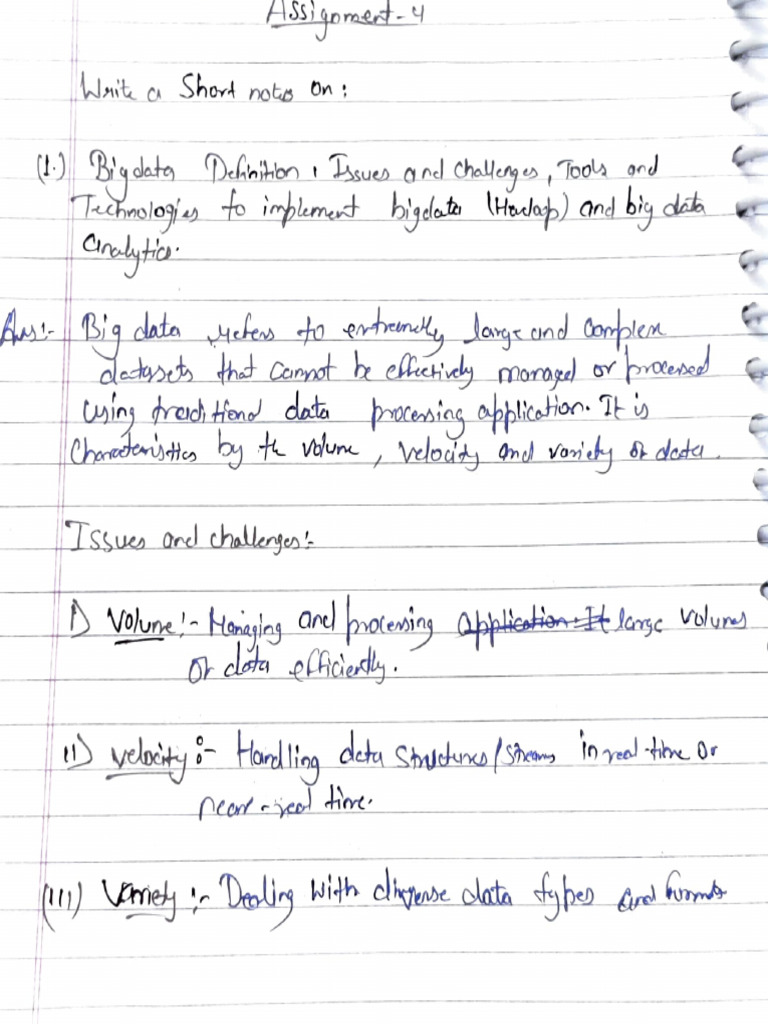 Assignment-4
Write a Short notes on :
(1.) Bigdata Definition, Issues and challenges, Tools and
Technologies to implement bigdata (Hadoop) and big data
analytics.
Ans:- Big data refers to extremely large and complex
datasets that cannot be effectively managed or processed
using traditional data processing application. It is
Characteristics by the volume, velocity and variety of data.
Issues and challenges:-
I) Volume:- Managing and processing application. It large volumes
of data efficiently.
II) velocity:- Handling data structures/streams in real-time or
near-real time.
(III) Variety:- Dealing with diverse data types and formats